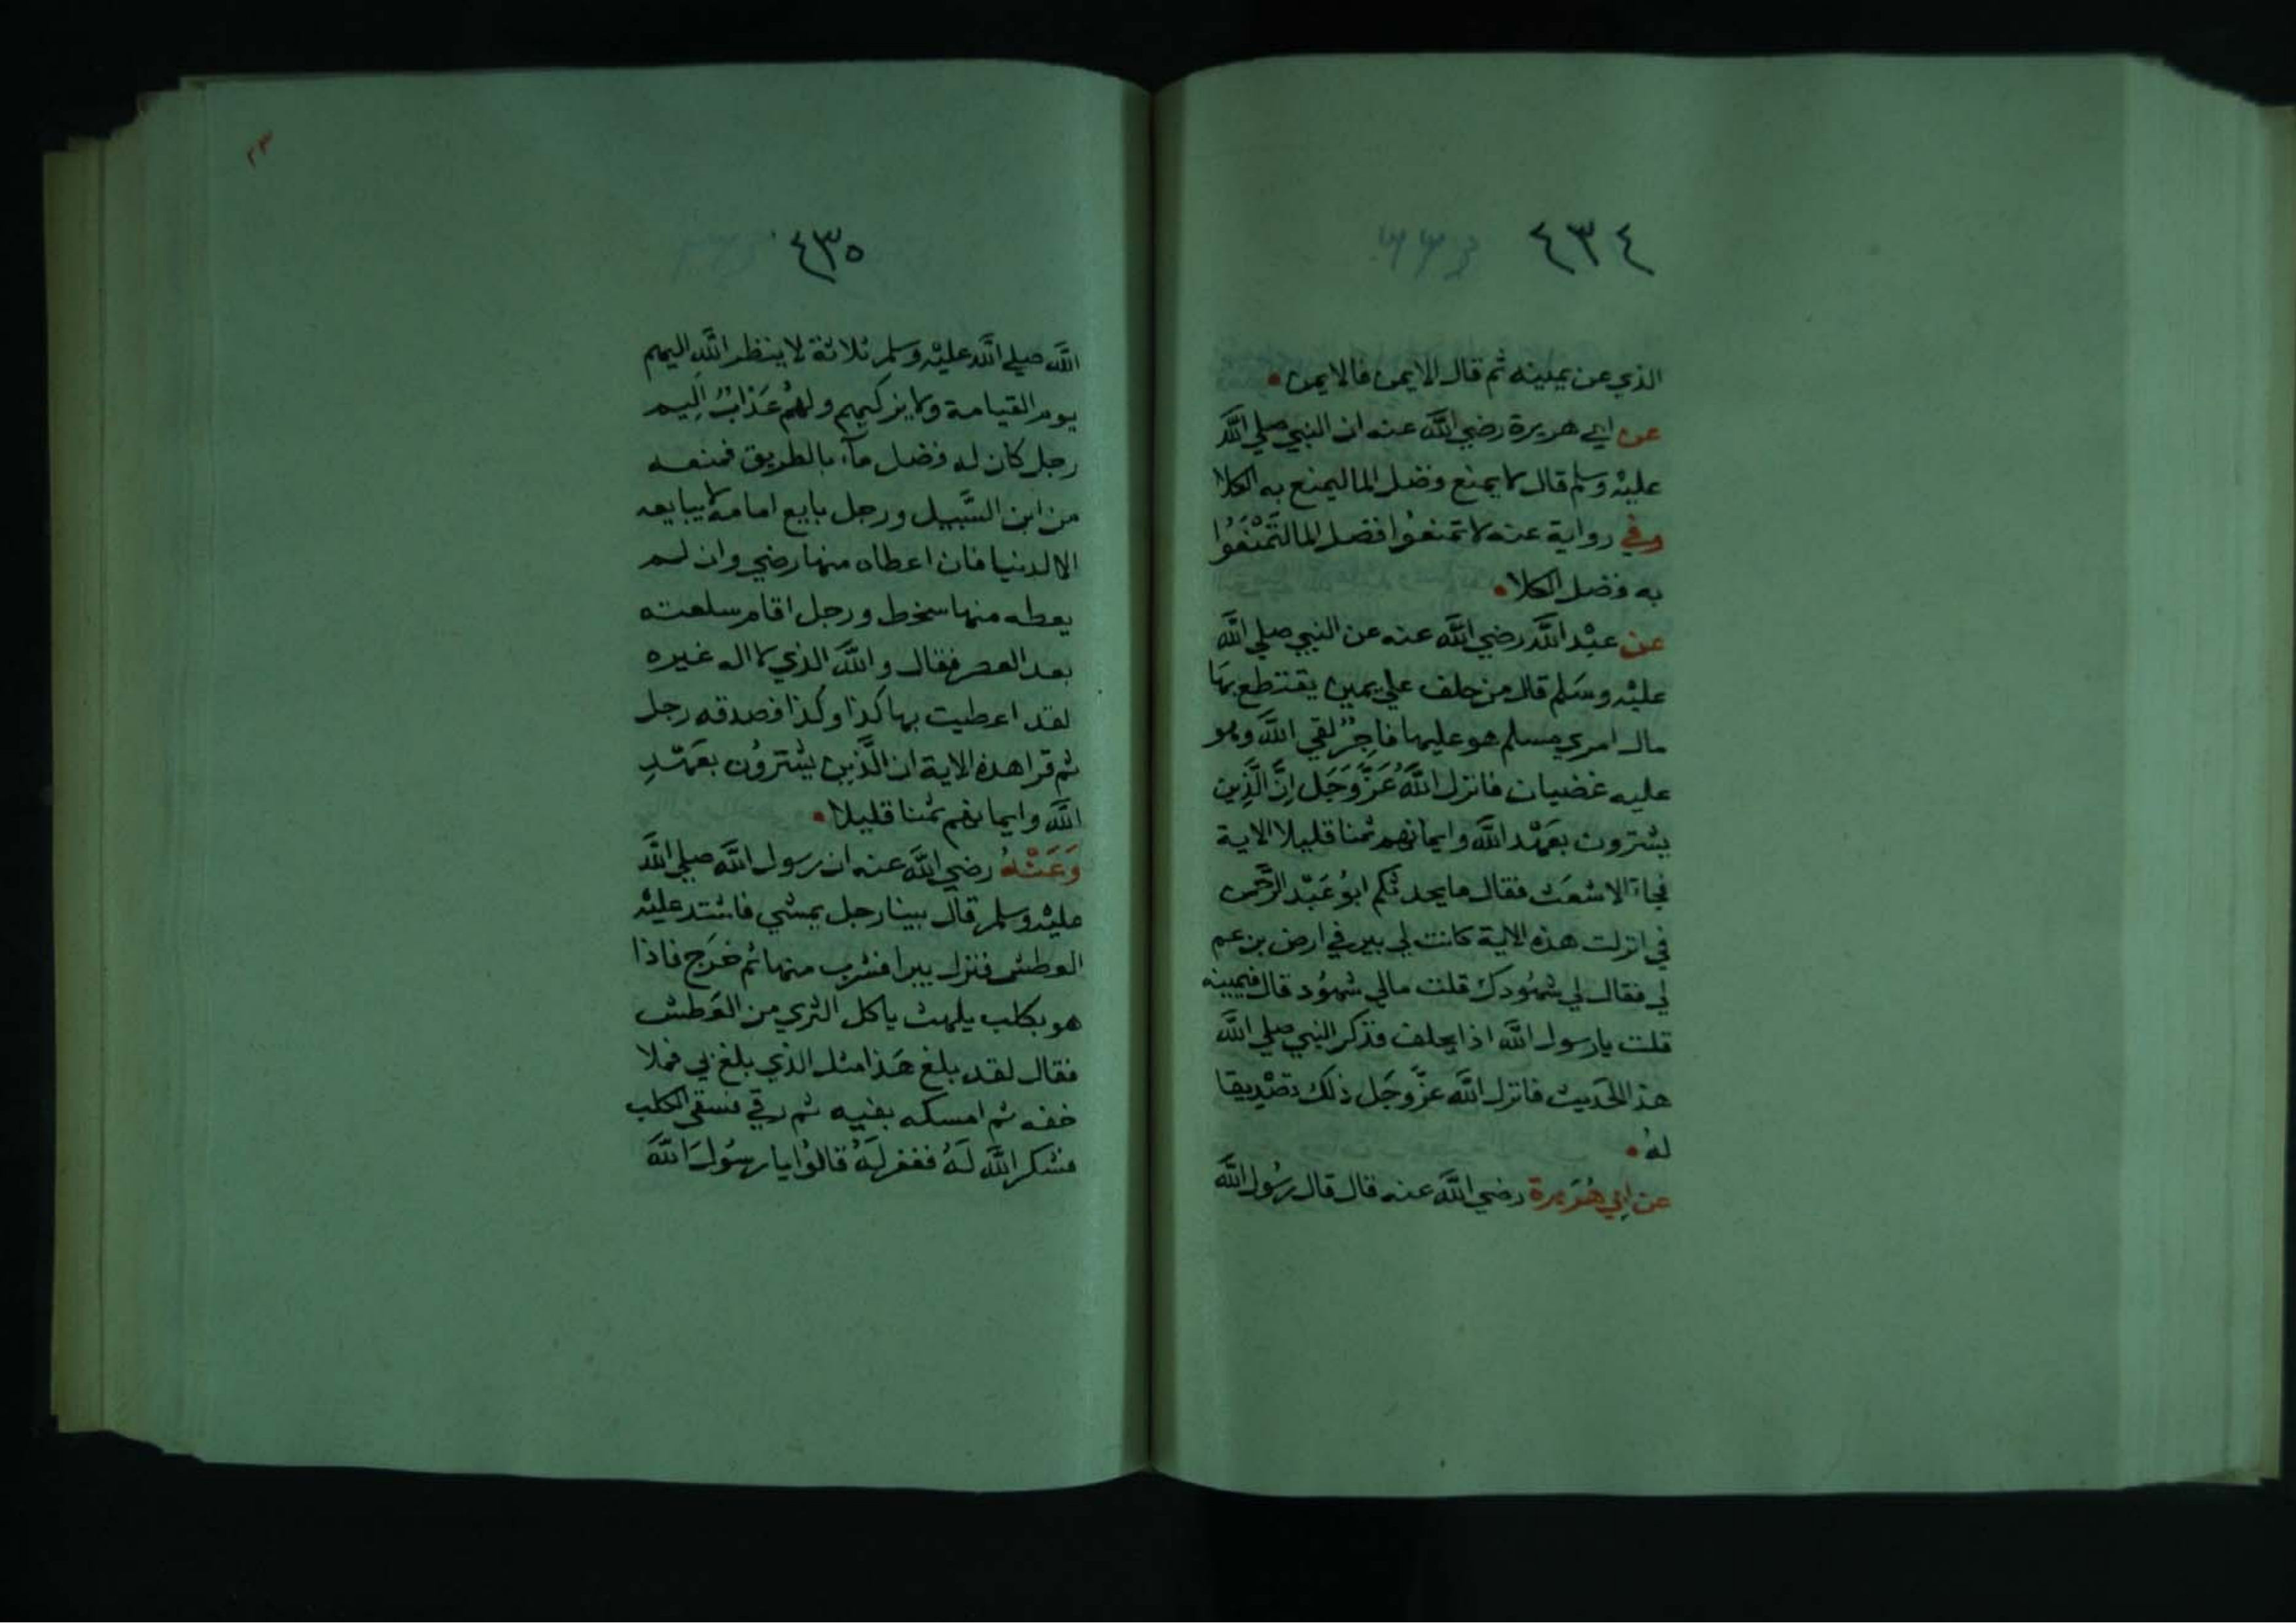 ٤٣٤
الذي عن يمينه ثم قال الايمن فالايمن
عن ابي هريرة رضي الله عنه ان النبي صلي الله
عليه وسلم قال لا يمنع فضل الما ليمنع به الكلا
وفي رواية عنه لا تمنعوا فضل الما لتمنعوا
به فضل الكلا
عن عبد الله رضي الله عنه عن النبي صلي الله
عليه وسلم قال من حلف علي يمين يقتطع بها
مال امري مسلم هو عليها فاجر لقي الله وهو
عليه غضبان فانزل الله عز وجل ان الذين
يشترون بعهد الله وايمانهم ثمنا قليلا الاية
فجاء الاشعث فقال ما يحدثكم ابو عبد الرحمن
في انزلت هذه الاية كانت لي بير في ارض بن عم
لي فقال لي شهودك قلت مالي شهود قال فيمينه
قلت يا رسول الله اذا يحلف فذكر النبي صلي الله
هذا الحديث فانزل الله عز وجل ذلك تصديقا
له
عن ابي هريرة رضي الله عنه قال قال رسول الله
٤٣٥
الله صلي الله عليه وسلم ثلاثة لا ينظر الله اليهم
يوم القيامة ولا يزكيهم ولهم عذاب اليم
رجل كان له فضل ماء بالطريق فمنعه
من ابن السبيل ورجل بايع امامه لا يبايعه
الا لدنيا فان اعطاه منها رضي وان لم
يعطه منها سخط ورجل اقام سلعته
بعد العصر فقال والله الذي لا اله غيره
لقد اعطيت بها كذا وكذا فصدقه رجل
ثم قرا هذه الاية ان الذين يشترون بعهد
الله وايمانهم ثمنا قليلا
وعنه رضي الله عنه ان رسول الله صلي الله
عليه وسلم قال بينا رجل يمشي فاشتد عليه
العطش فنزل بيرا فشرب منها ثم خرج فاذا
هو بكلب يلهث ياكل الثري من العطش
فقال لقد بلغ هذا مثل الذي بلغ بي فملا
خفه ثم امسكه بفيه ثم رقي فسقي الكلب
فشكر الله له فغفر له قالوا يا رسول الله